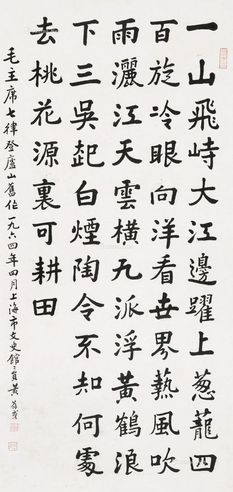 一山飛峙大江邊躍上葱蘢四
百旋冷眼向洋看世界熱風吹
雨灑江天雲橫九派浮黃鶴浪
下三吳起白煙陶令不知何處
去桃花源裏可耕田
毛主席七律登廬山舊作一九六四年四月上海市文史館館員黃葆戉